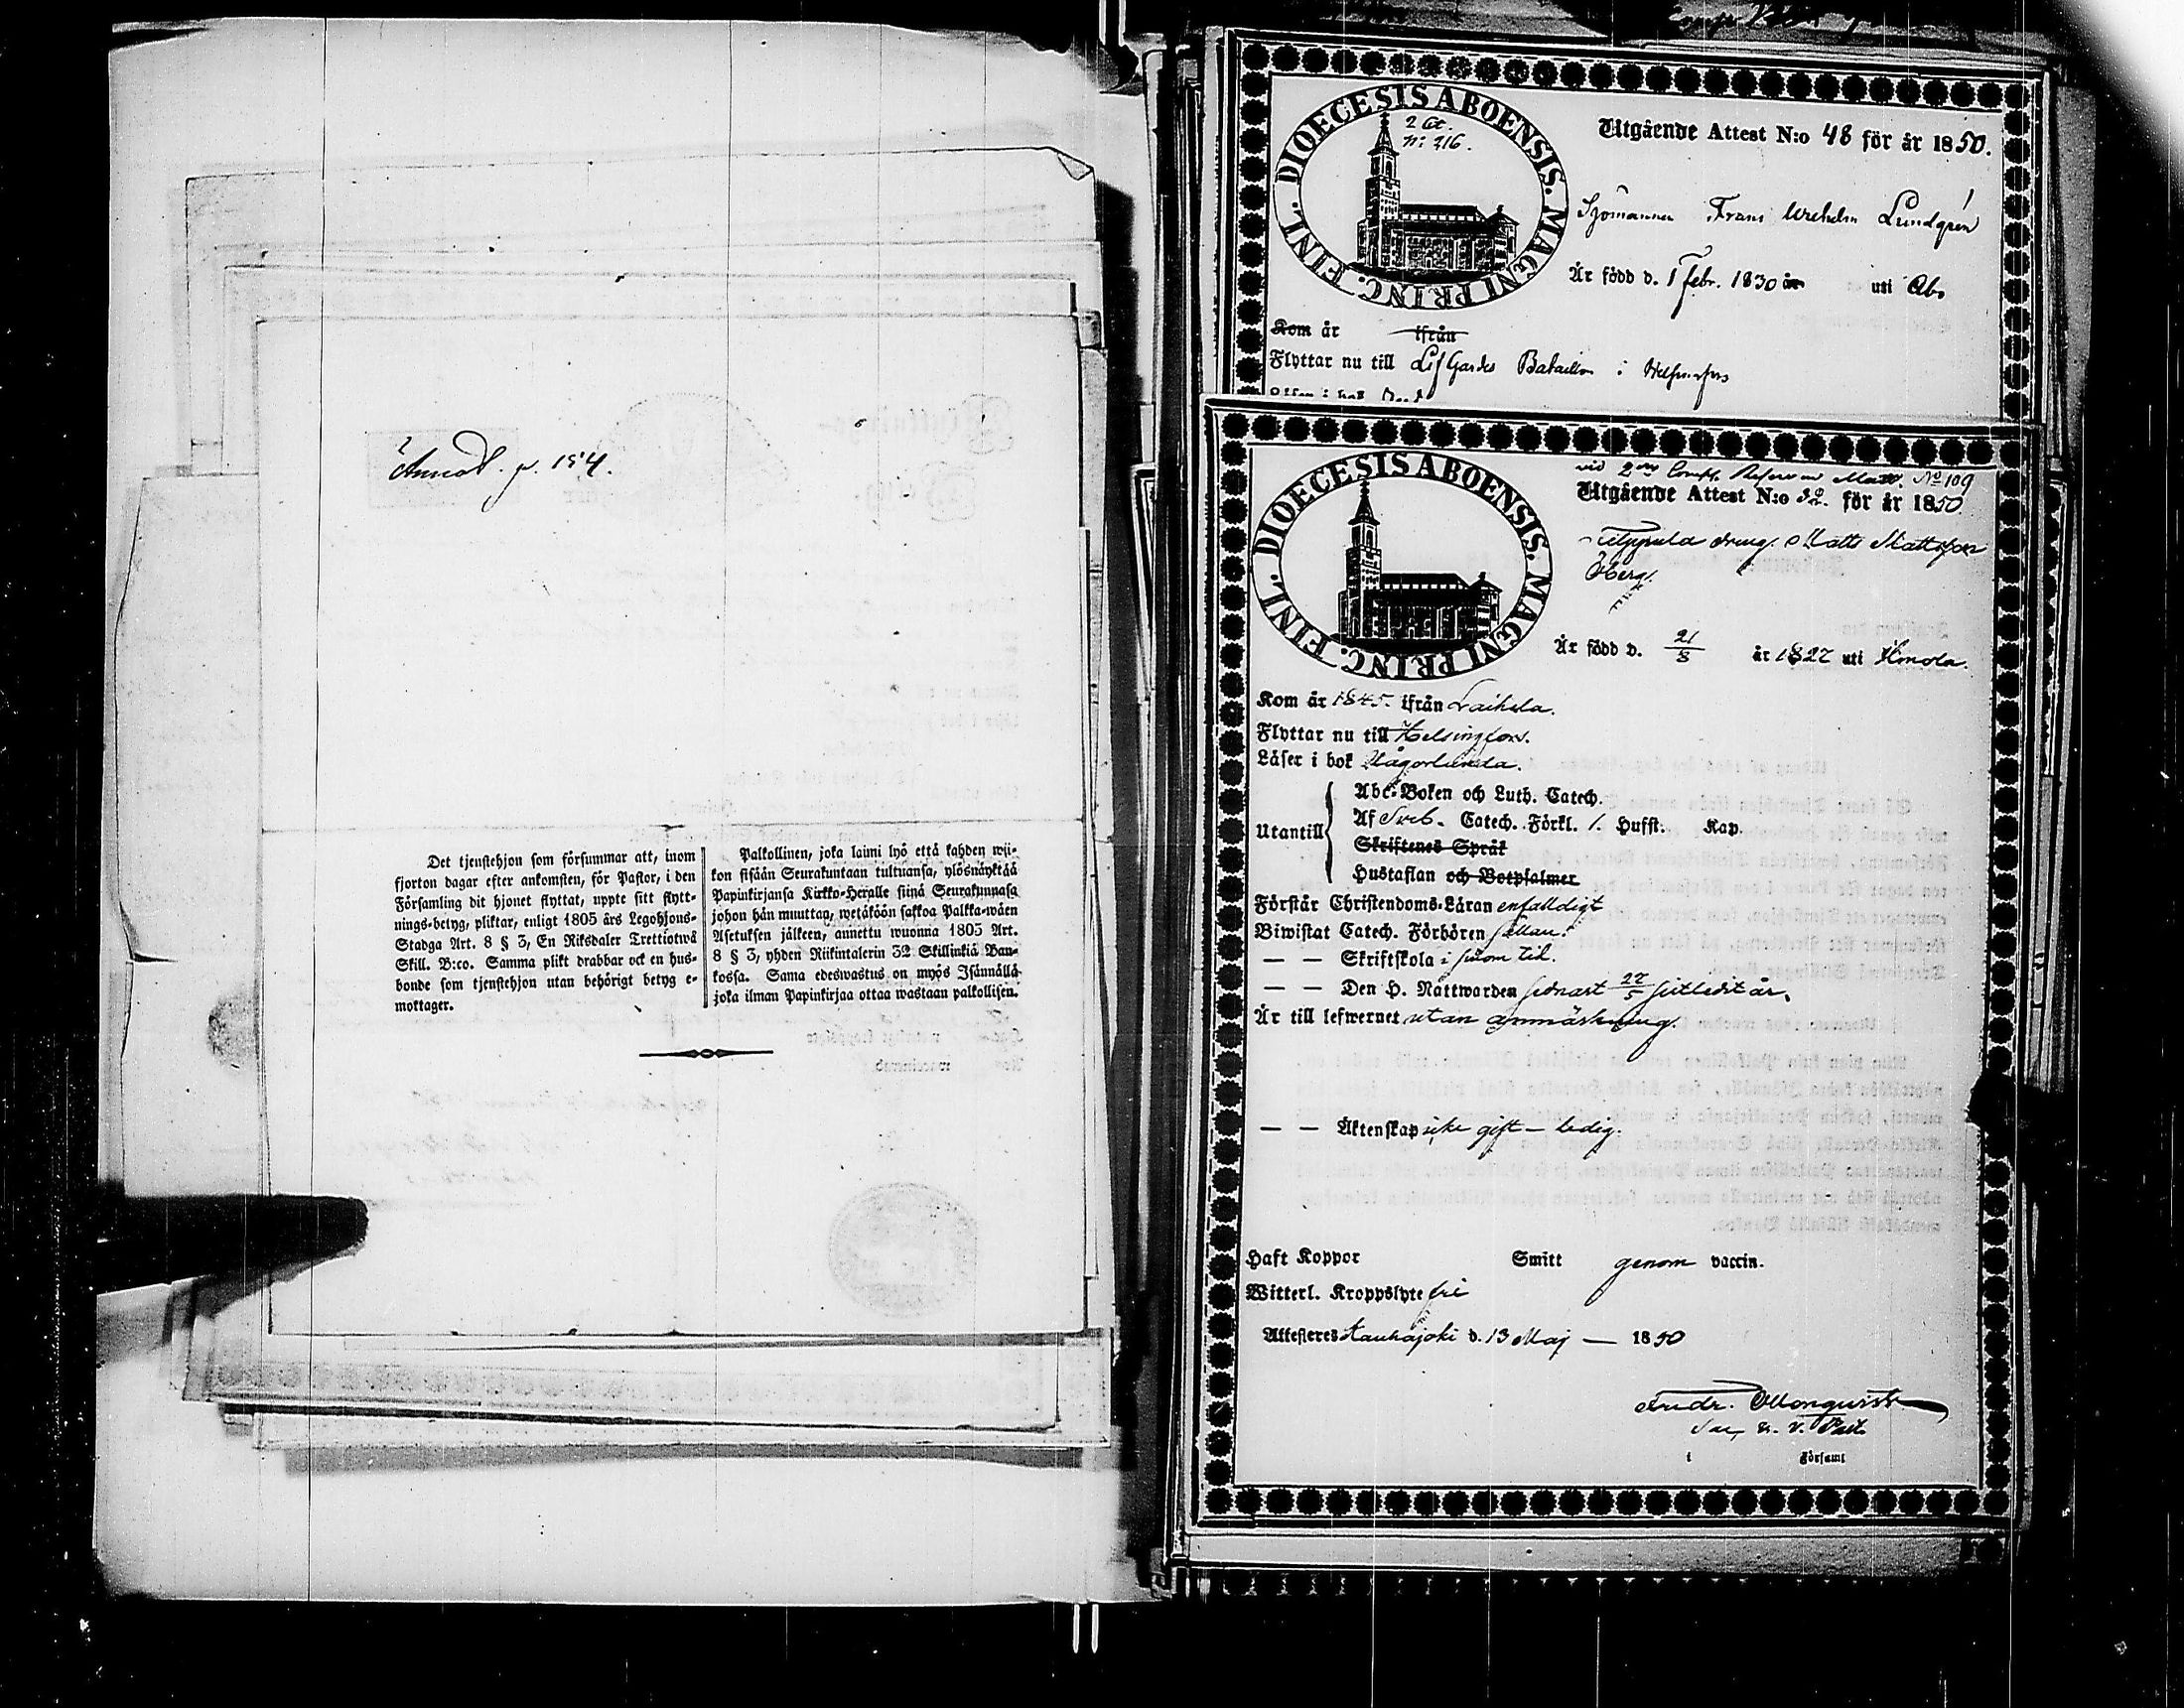 Annot. p. 154.
Det tjenstehjon som försummar att, inom
fjorton dagar efter ankomsten, för Pastor, i den
Församling dit hjonet flyttat, uppte sitt flytt-
nings-betyg, pliktar, enligt 1805 års Legohjons-
Stadga Art. 8 § 3, En Riksdaler Trettiotwå
Skill. B:co. Samma plikt drabbar ock en hus-
bonde som tjenstehjon utan behörigt betyg e-
mottager.
Palkollinen, joka laimi lyö että kahden wii-
kon sisään Seurakuntaan tultuansa, ylösnäyttää
Papinkirjansa Kirkko-Heralle siinä Seurakunnasa
johon hän muuttan, wetäköön sakkoa Palkka-wäen
Asetuksen jälkeen, annettu wuonna 1805 Art.
8 § 3, yhden Riikintalerin 32 Skillinkiä Ban-
kossa. Sama edeswastus on myös Isännällä
joka ilman Papinkirjaa ottaa wastaan palkollisen.
DIOECESIS ABOENSIS. MAGNI PRINC. FINL.
2 Ct.
n: 216.
Utgående Attest N:o 48 för år 1850.
Sjömannen Frans Wilhelm Lundgrén
Är född d. 1 Febr. 1830 år uti Åbo
Kom år ifrån
Flyttar nu till Lif Gardes Bataillon i Helsingfors
DIOECESIS ABOENSIS. MAGNI PRINC. FINL.
vid 2 Comp. No 109
Utgående Attest N:o 32. för år 1850
dreng. Matts Mattsson
Öberg.
Är född d. 21/8 år 1827 uti Ilmola.
Kom år 1845. ifrån Laihela.
Flyttar nu till Helsingfors.
Läser i bok någorlunda.
Utantill
Abc-Boken och Luth. Catech.
Af Sveb. Catech. Förkl. 1. Hufst. Kap.
Skriftenes Språk
Hustaflan och Botpsalmer
Förstår Christendoms-Läran enfalldigt
Biwistat Catech. Förhören sällan.
— — Skriftskola i sinom tid.
— — Den H. Nattwarden sednast 27/5 sistledit år.
Är till lefwernet utan anmärkning.
— — Äktenskap icke gift — ledig.
Haft Koppor Smitt genom vaccin.
Witterl. Kroppslyte fri
Attesteres Kauhajoki d. 13 Maj — 1850
Andr. Monquist
v. Past.
i Församl